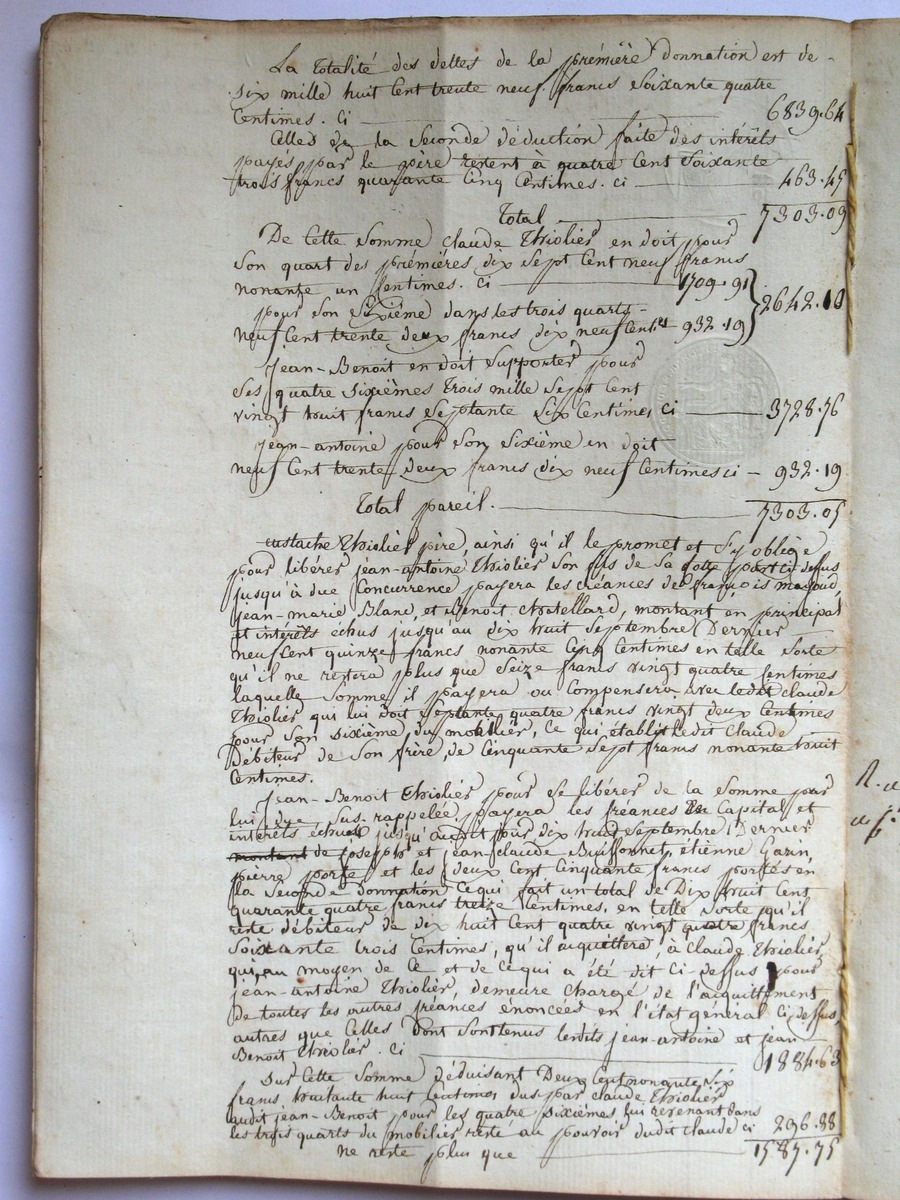 La Totalité des dettes de la première donnation est de
six mille huit Cent trente neuf francs Soixante quatre
Centimes. Ci 6839.64
Celles de la Seconde déduction faite des intérêts
payés par le père restent a quatre Cent Soixante
trois francs quarante Cinq Centimes. ci 463.45
Total 7303.09
De Cette Somme Claude Thiolier en doit pour
Son quart des prémières dix Sept Cent neuf francs
nonante un Centimes. Ci 1709.91
pour son Sixième dans les trois quarts
neuf Cent trente deux francs dix neuf Cent.es 932.19 } 2642.10
Jean-Benoit en doit Supporter pour
Ses quatre Sixièmes Trois mille Sept Cent
vingt huit francs Septante Six Centimes Ci 3728.76
Jean-antoine pour Son Sixième en doit
neuf Cent trente deux francs dix neuf Centimes ci 932.19
Total pareil. 7303.05
Eustache Thiolier père, ainsi qu'il le promet et S'y oblige
pour libérer jean-antoine Thiolier Son fils de Sa Cotte part ci dessus
jusqu'à due Concurrence payera les créances de françois
jean-marie Blanc, et Benoit Chatellard, montant en principal
et interêts échus jusqu'au dix huit Septembre Dernier
neuf Cent quinze francs nonante Cinq Centimes en telle Sorte
qu'il ne restera plus que Seize francs vingt quatre Centimes
laquelle Somme il payera ou Compensera avec ledit Claude
Thiolier qui lui doit Septante quatre francs vingt deux Centimes
pour Son Sixième du mobilier, Ce qui établit Ledit Claude
Débiteur de Son frère, de Cinquante Sept francs nonante huit
Centimes.
Jean-Benoit Thiolier pour se libérer de la Somme par
lui due Sus rappelée, payera les Créances en Capital et
interêts échus jusqu'audit jour dix huit Septembre Dernier
montant de joseph et jean-Claude Buissonnet, étienne Garin,
pierre et les Deux Cent Cinquante francs portés en
la Seconde donnation Ce qui fait un total de Dix huit Cent
quarante quatre francs treize Centimes, en telle Sorte qu'il
reste débiteur de dix huit Cent quatre vingt quatre francs
Soixante trois Centimes, qu'il acquittera, à Claude Thiolier,
qui, au moyen de Ce et de Ce qui a été dit Ci-dessus pour
jean-antoine Thiolier, demeure chargé de l'acquittement
De toutes les autres Créances énoncées en l'état général Ci dessus,
autres que Celles Dont Sont tenus lesdits jean-antoine et jean
Benoit Thiolier. Ci 1884.63
Sur Cette Somme déduisant Deux Cent nonante Six
francs huitante huit Centimes dus par Claude Thiolier
audit jean-Benoit pour les quatre Sixièmes lui revenant dans
les trois quarts du mobilier resté au pouvoir dudit Claude ci 296.88
ne reste plus que 1587.75